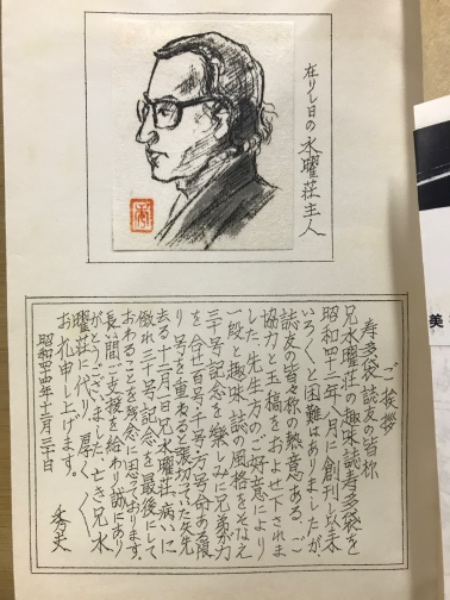 在りし日の水曜荘主人
ご挨拶
寿多袋誌友の皆様
兄水曜荘の趣味誌寿多袋を
昭和四十二年八月に創刊し以来
いろ〱と困難はありましたが、
誌友の皆々様の熱意ある、ご
協力と玉稿をおよせ下されま
した、先生方のご好意により
一段と趣味誌の風格をそなえ
三十号記念を楽しみに兄弟が力
を合せ百号千号万号命ある限
り号を重ねると張切っていた矢先
去る十二月一日兄水曜荘、病いに
倒れ三十号記念を最後にして
おわることを残念に思っております。
長い間ご支援を給わり誠にあり
がとうございました亡き兄水
曜荘に代り厚く〱
お礼申し上げます。
昭和四十四年十二月三十日
秀夫
美